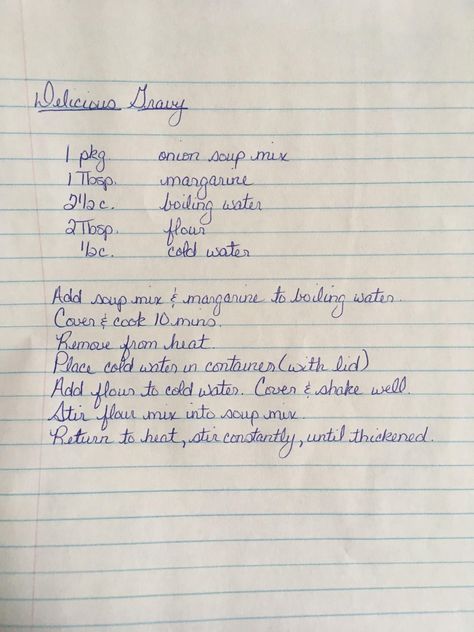 Delicious Gravy
1 pkg. onion soup mix
1 Tbsp. margarine
2 1/2 c. boiling water
2 Tbsp. flour
1/2 c. cold water
Add soup mix & margarine to boiling water.
Cover & cook 10 mins.
Remove from heat.
Place cold water in container (with lid)
Add flour to cold water. Cover & shake well.
Stir flour mix into soup mix.
Return to heat, stir constantly, until thickened.